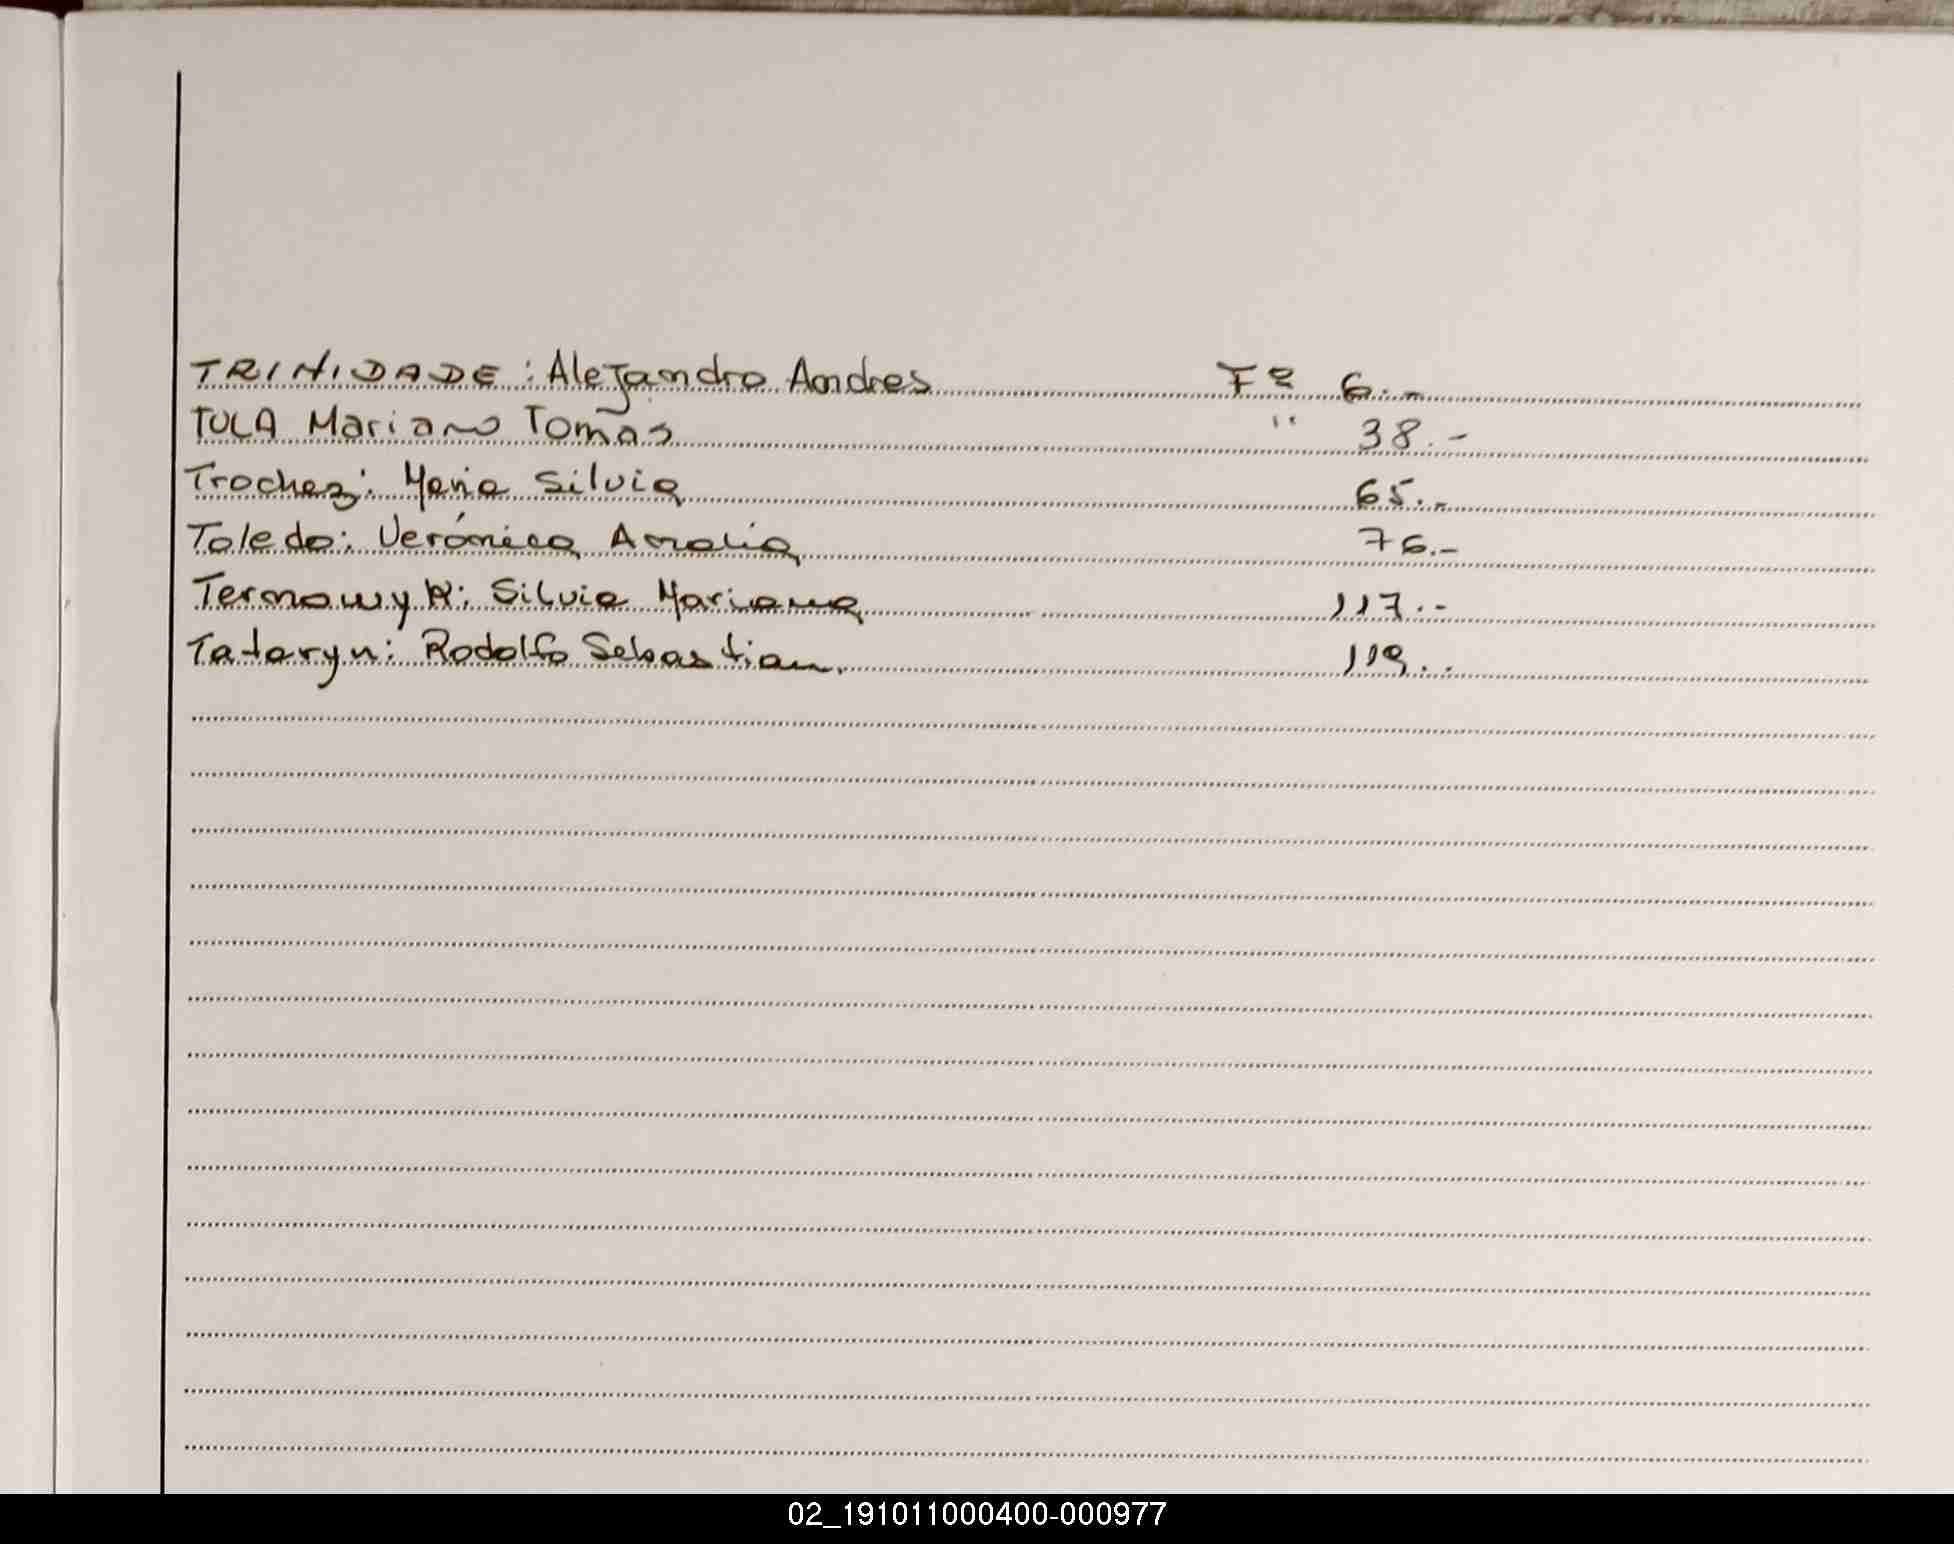 TRINIDADE: Alejandro Andres Fº 6.-
TULA Mariano Tomas " 38.-
Trochez: Maria Silvia 65.-
Toledo: Verónica Analia 76.-
Ternowyk: Silvia Mariana 117.-
Tataryn: Rodolfo Sebastian. 119.-
02_191011000400-000977